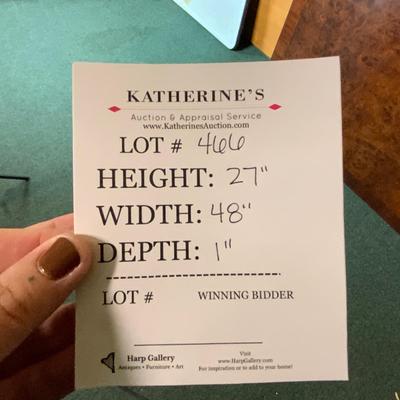 KATHERINE'S
Auction & Appraisal Service
www.KatherinesAuction.com
LOT # 466
HEIGHT: 27"
WIDTH: 48"
DEPTH: 1"
LOT # WINNING BIDDER
Harp Gallery
Antiques • Furniture • Art
Visit
www.HarpGallery.com
For inspiration or to add to your home!